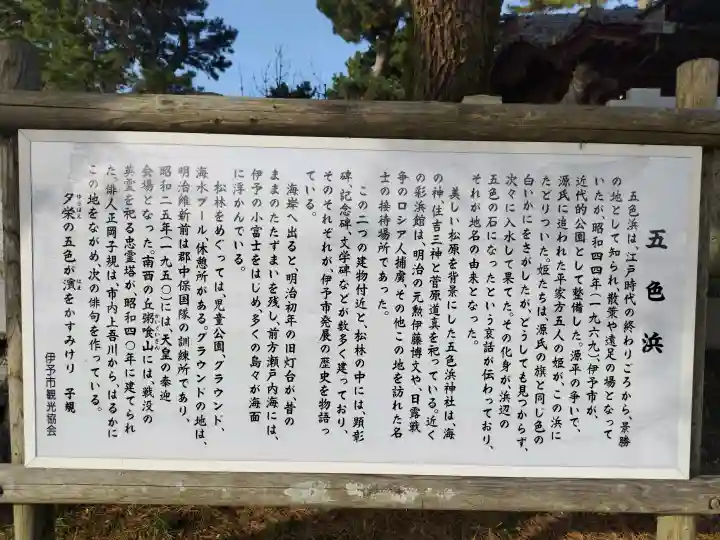 五色浜
五色浜は、江戸時代の終わりごろから、景勝
の地として知られ、散策や遠足の場となって
いたが、昭和四四年(一九六九)、伊予市が、
近代的公園として整備した。源平の争いで、
源氏に追われた平家方五人の姫が、この浜に
たどりついた。姫たちは、源氏の旗と同じ色の
白いかにをさがしたが、どうしても見つからず、
次々に入水して果てた。その化身が、浜辺の
五色の石になったという哀話が伝わっており、
それが地名の由来となった。
美しい松原を背景にした五色浜神社は、海
の神、住吉三神と菅原道真を祀っている。近く
の彩浜館は、明治の元勲伊藤博文や、日露戦
争のロシア人捕虜、その他この地を訪れた名
士の接待場所であった。
この二つの建物付近と、松林の中には、顕彰
碑、記念碑、文学碑などが数多く建っており、
そのそれぞれが、伊予市発展の歴史を物語っ
ている。
海岸へ出ると、明治初年の旧灯台が、昔の
ままのたたずまいを残し、前方瀬戸内海には、
伊予の小富士をはじめ、多くの島々が海面
に浮かんでいる。
松林をめぐっては、児童公園、グラウンド、
海水プール、休憩所がある。グラウンドの地は、
明治維新前は郡中保国隊の訓練所であり、
昭和二五年(一九五〇)には、天皇の奉迎
会場となった。南西の丘粥喰山には、戦没の
英霊を祀る忠霊塔が、昭和四〇年に建てられ
た。俳人正岡子規は、市内上吾川から、はるかに
この地をながめ、次の俳句を作っている。
夕栄の五色が濱をかすみけり 子規
伊予市観光協会